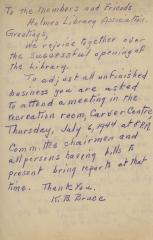 To the Members and Friends
Holmes Library Association.
Greetings,
We rejoice together over
the successful opening of
the Library.
To adjust all unfinished
business you are asked
to attend a meeting in the
recreation room, Carver Centre,
Thursday, July 6, 1944 at 8 P.M.
Committee chairmen and
all persons having bills to
present bring reports at that
time. Thank You,
K. B. Bruce